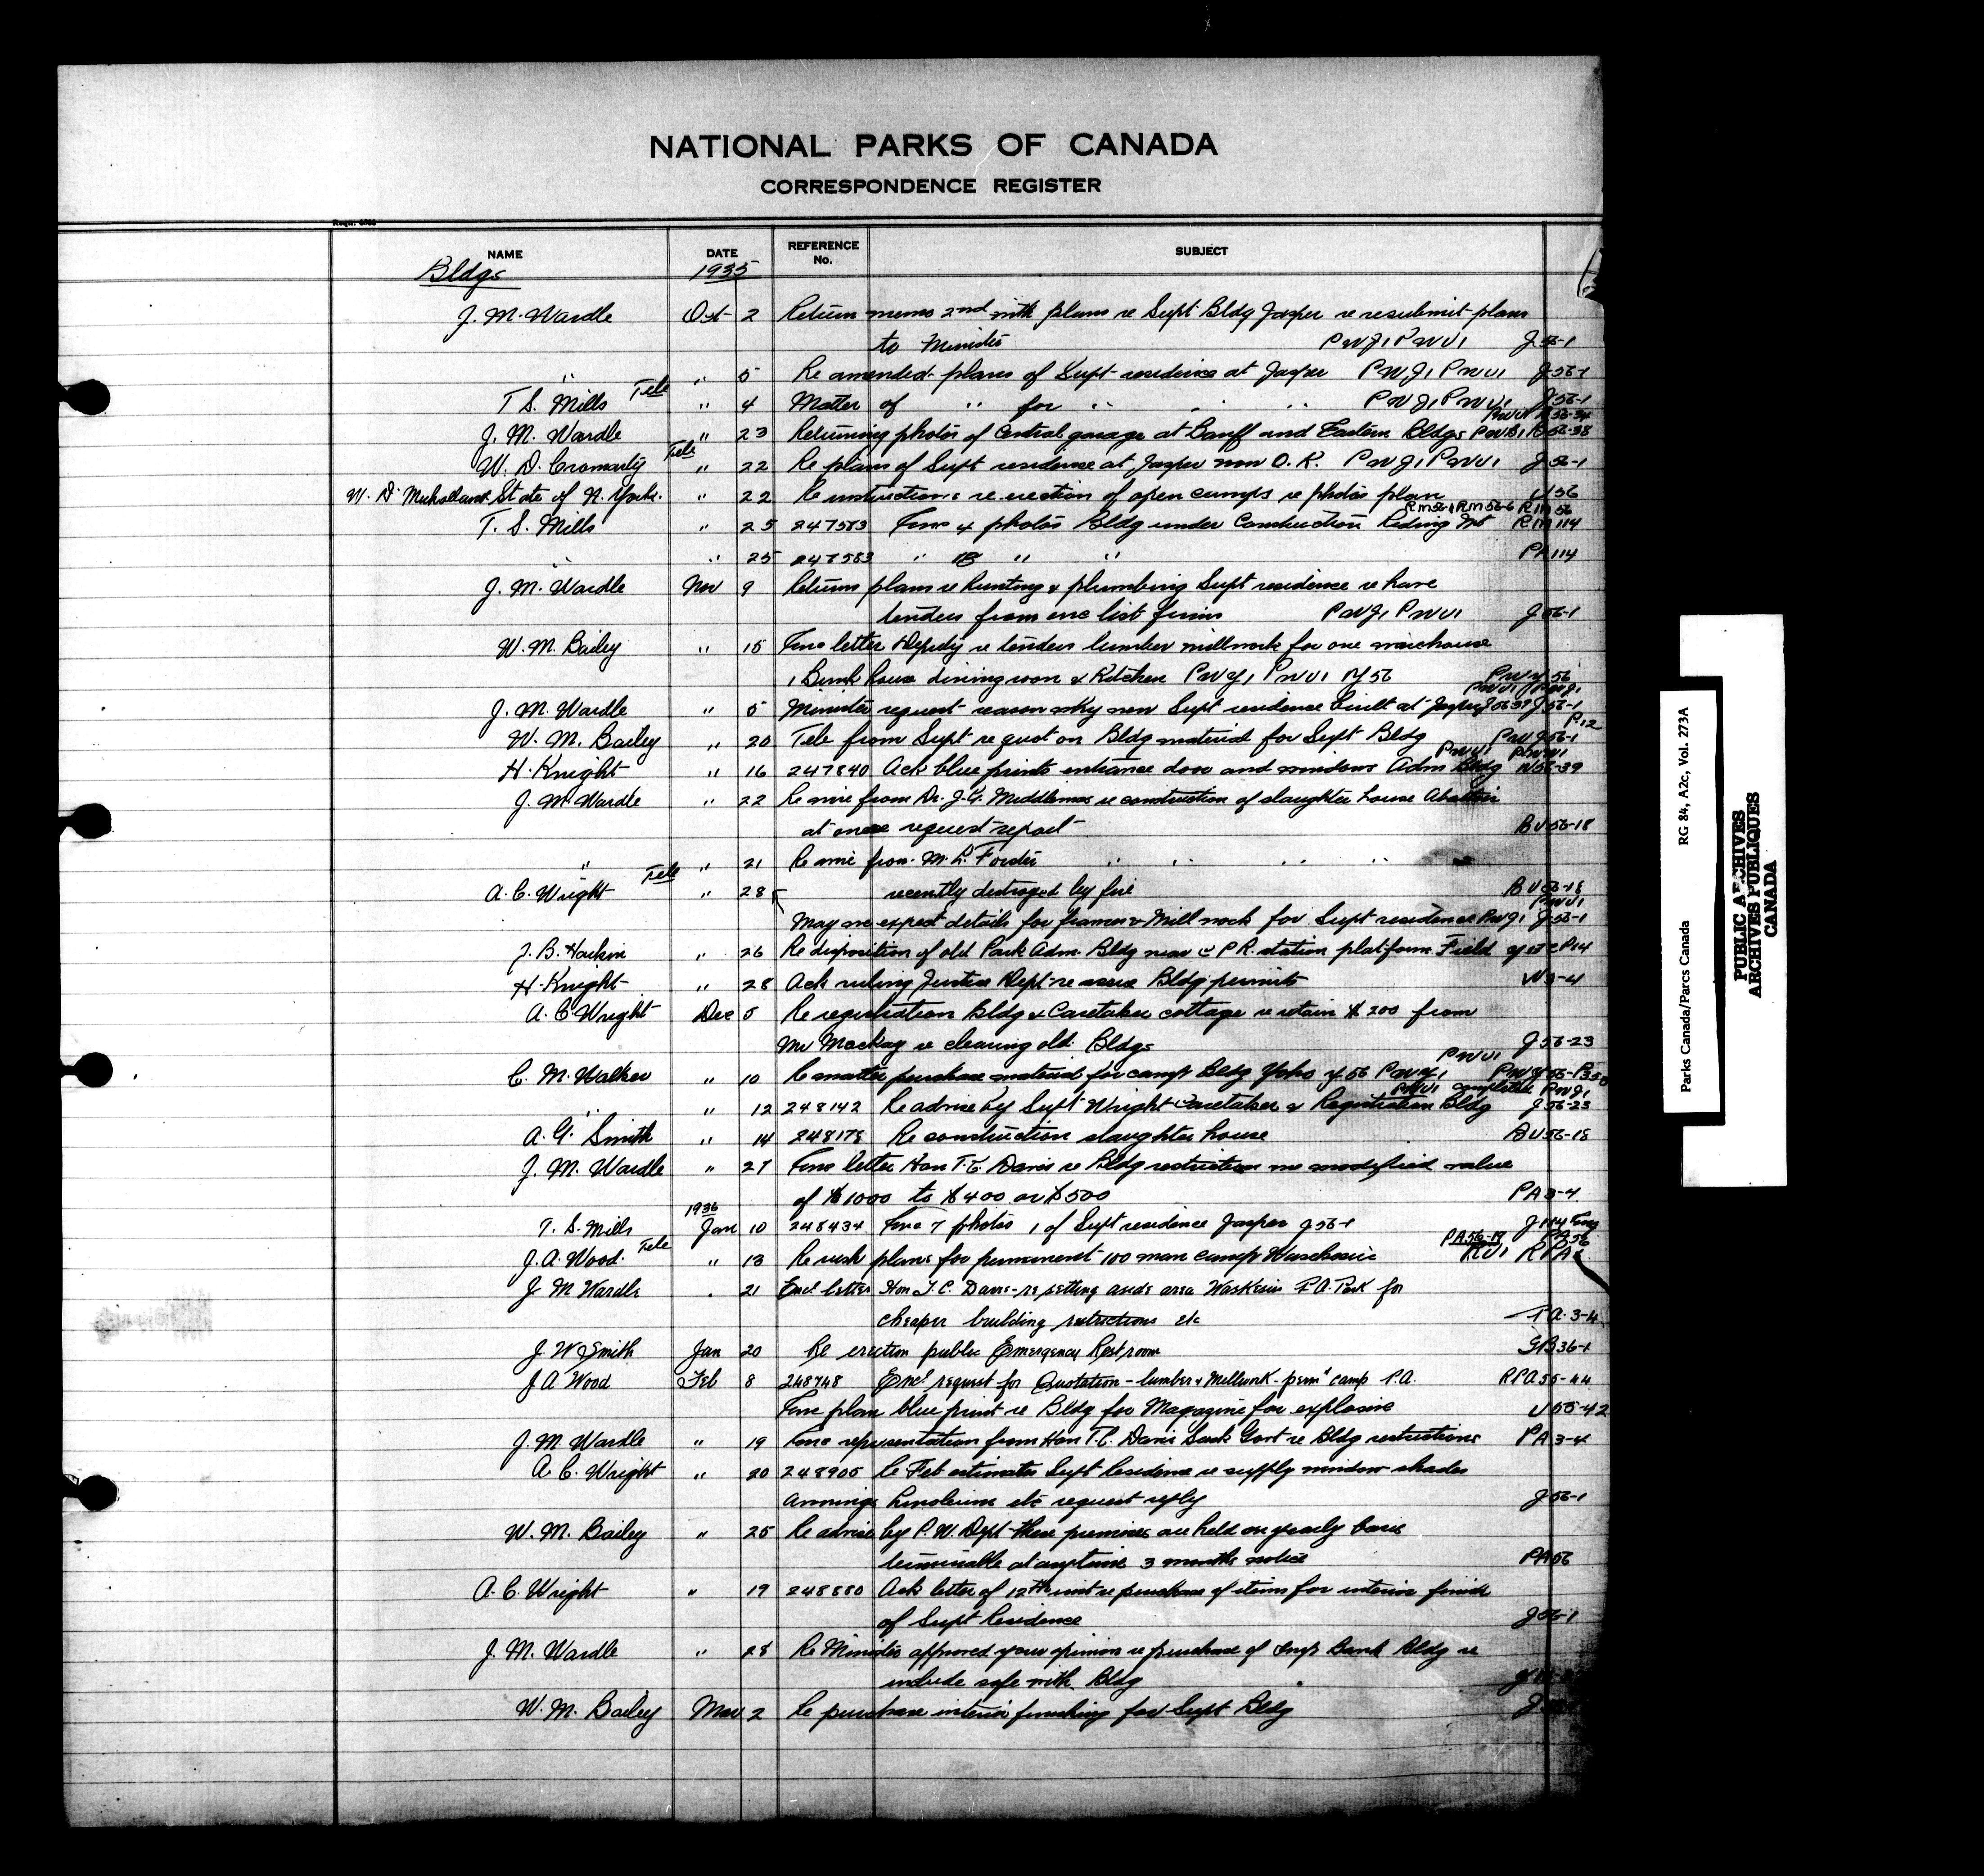 NATIONAL PARKS OF CANADA
CORRESPONDENCE REGISTER
NAME DATE REFERENCE No. SUBJECT
Bldgs 1935
J. M. Wardle Oct 2 Return memo 2nd with plans re Supt Bldg Jasper re resubmit plans
to Minister PWJ1 PWU1 J56-1
" " 5 Re amended plans of Supt residence at Jasper PWJ1 PWU1 J56-1
T. S. Mills Tele " 4 Matter of " for " " " PWJ1 PWU1 J56-1
J. M. Wardle " 23 Returning photos of Central garage at Banff and Eastern Bldgs PWB1 B56-38
W. D. Cromarty Tele " 22 Re plans of Supt residence at Jasper now O.K. PWJ1 PWU1 J56-1
W. D. State of N. York. " 22 Re instructions re erection of open camps re photos plan U56
RM56-1 RM56-6 RM56
T. S. Mills " 25 247583 Enc 4 photos Bldg under Construction Riding Mt RM114
" " 25 247583 " 18 " " PA114
J. M. Wardle Nov 9 Returns plans re heating & plumbing Supt residence re have
tenders from enc list firms PWJ1 PWU1 J56-1
W. M. Bailey " 15 Enc letter Deputy re tenders lumber millwork for one warehouse
1 Bunk house dining room & Kitchen PWY1 PWU1 Y56 PWY56
PWU1 PWJ1
J. M. Wardle " 5 Minister request reason why new Supt residence built at Jasper J56-39 J56-1
P12
W. M. Bailey " 20 Tele from Supt re quot on Bldg material for Supt Bldg PWJ56-1
PWU1 PWW1
H. Knight " 16 247840 Ack blue prints entrance door and windows Adm Bldg W56-39
J. M. Wardle " 22 Re wire from Dr. J. G. Middlemas re construction of slaughter house Abattoir
at once request report BU56-18
" " 21 Re wire from M. L. Forster " " " "
A. C. Wright Tele " 28 recently destroyed by fire BU56-18
PWU1
May we expect details for frames & Mill work for Supt residence PWJ1 J56-1
J. B. Harkin " 26 Re disposition of old Park Adm. Bldg near C P R. station platform Field
H. Knight " 28 Ack ruling Justice Dept re assess Bldg permits W3-4
A. C. Wright Dec 5 Re registration Bldg & Caretaker cottage re retain $200 from
Mr Mackay re clearing old Bldgs J56-23
PWU1
C. M. Walker " 10 Re matter purchase material for camp Bldg Yoho Y56 PWY1
PWU1 complete PWJ1
" " 12 248142 Re advise by Supt Wright Caretaker & Registration Bldg J56-23
A. G. Smith " 14 248178 Re construction slaughter house BU56-18
J. M. Wardle " 27 Enc letter Hon T. C. Davis re Bldg restriction modified value
of $1000 to $400 or $500 PA3-4
1936
T. S. Mills Jan 10 248434 Enc 7 photos 1 of Supt residence Jasper J56-1
PA56-19 PA56
J. A. Wood Tele " 13 Re rush plans for permanent 100 man camp Warehouse RU1
J M Wardle . 21 Encl letter Hon T. C. Davis - re setting aside area Waskesiu P.A. Park for
cheaper building restrictions etc PA. 3-4
J W Smith Jan 20 Re erection public Emergency Rest room GB36-1
J A Wood Feb 8 248748 Encl request for Quotation - lumber & Millwork - permt camp P.A. RPA55-44
Enc plan blue print re Bldg for Magazine for explosive U55-42
J. M. Wardle " 19 Enc representation from Hon T. C. Davis Sask Govt re Bldg restrictions PA3-4
A. C. Wright " 20 248905 Re Feb estimates Supt Residence re supply window shades
Awnings Linoleums etc request reply J56-1
W. M. Bailey " 25 Re advise by P. W. Dept these premises are held on yearly basis
terminable at anytime 3 months notice PA56
A. C. Wright " 19 248880 Ack letter of 12th inst re purchase of items for interior finish
of Supt Residence J56-1
J. M. Wardle " 28 Re Minister approved your opinion re purchase of Imp Bank Bldg re
include safe with Bldg
W. M. Bailey Mar 2 Re purchase interior furnishing for Supt Bldg
Parks Canada/Parcs Canada RG 84, A2c, Vol. 273A
PUBLIC ARCHIVES
ARCHIVES PUBLIQUES
CANADA